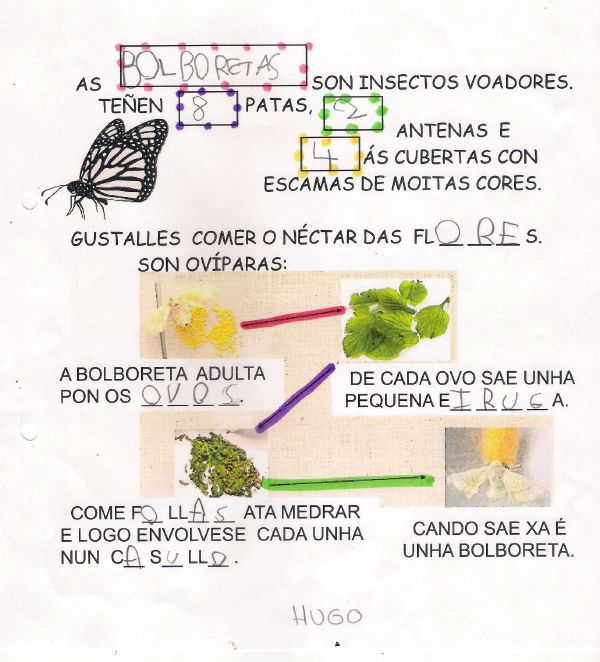 AS BOLBORETAS SON INSECTOS VOADORES.
TEÑEN 8 PATAS, 2
ANTENAS E
4 ÁS CUBERTAS CON
ESCAMAS DE MOITAS CORES.
GUSTALLES COMER O NÉCTAR DAS FLORES.
SON OVÍPARAS:
A BOLBORETA ADULTA
PON OS OVOS.
DE CADA OVO SAE UNHA
PEQUENA EIRUGA.
COME FOLLAS ATA MEDRAR
E LOGO ENVOLVESE CADA UNHA
NUN CASULLO.
CANDO SAE XA É
UNHA BOLBORETA.
HUGO